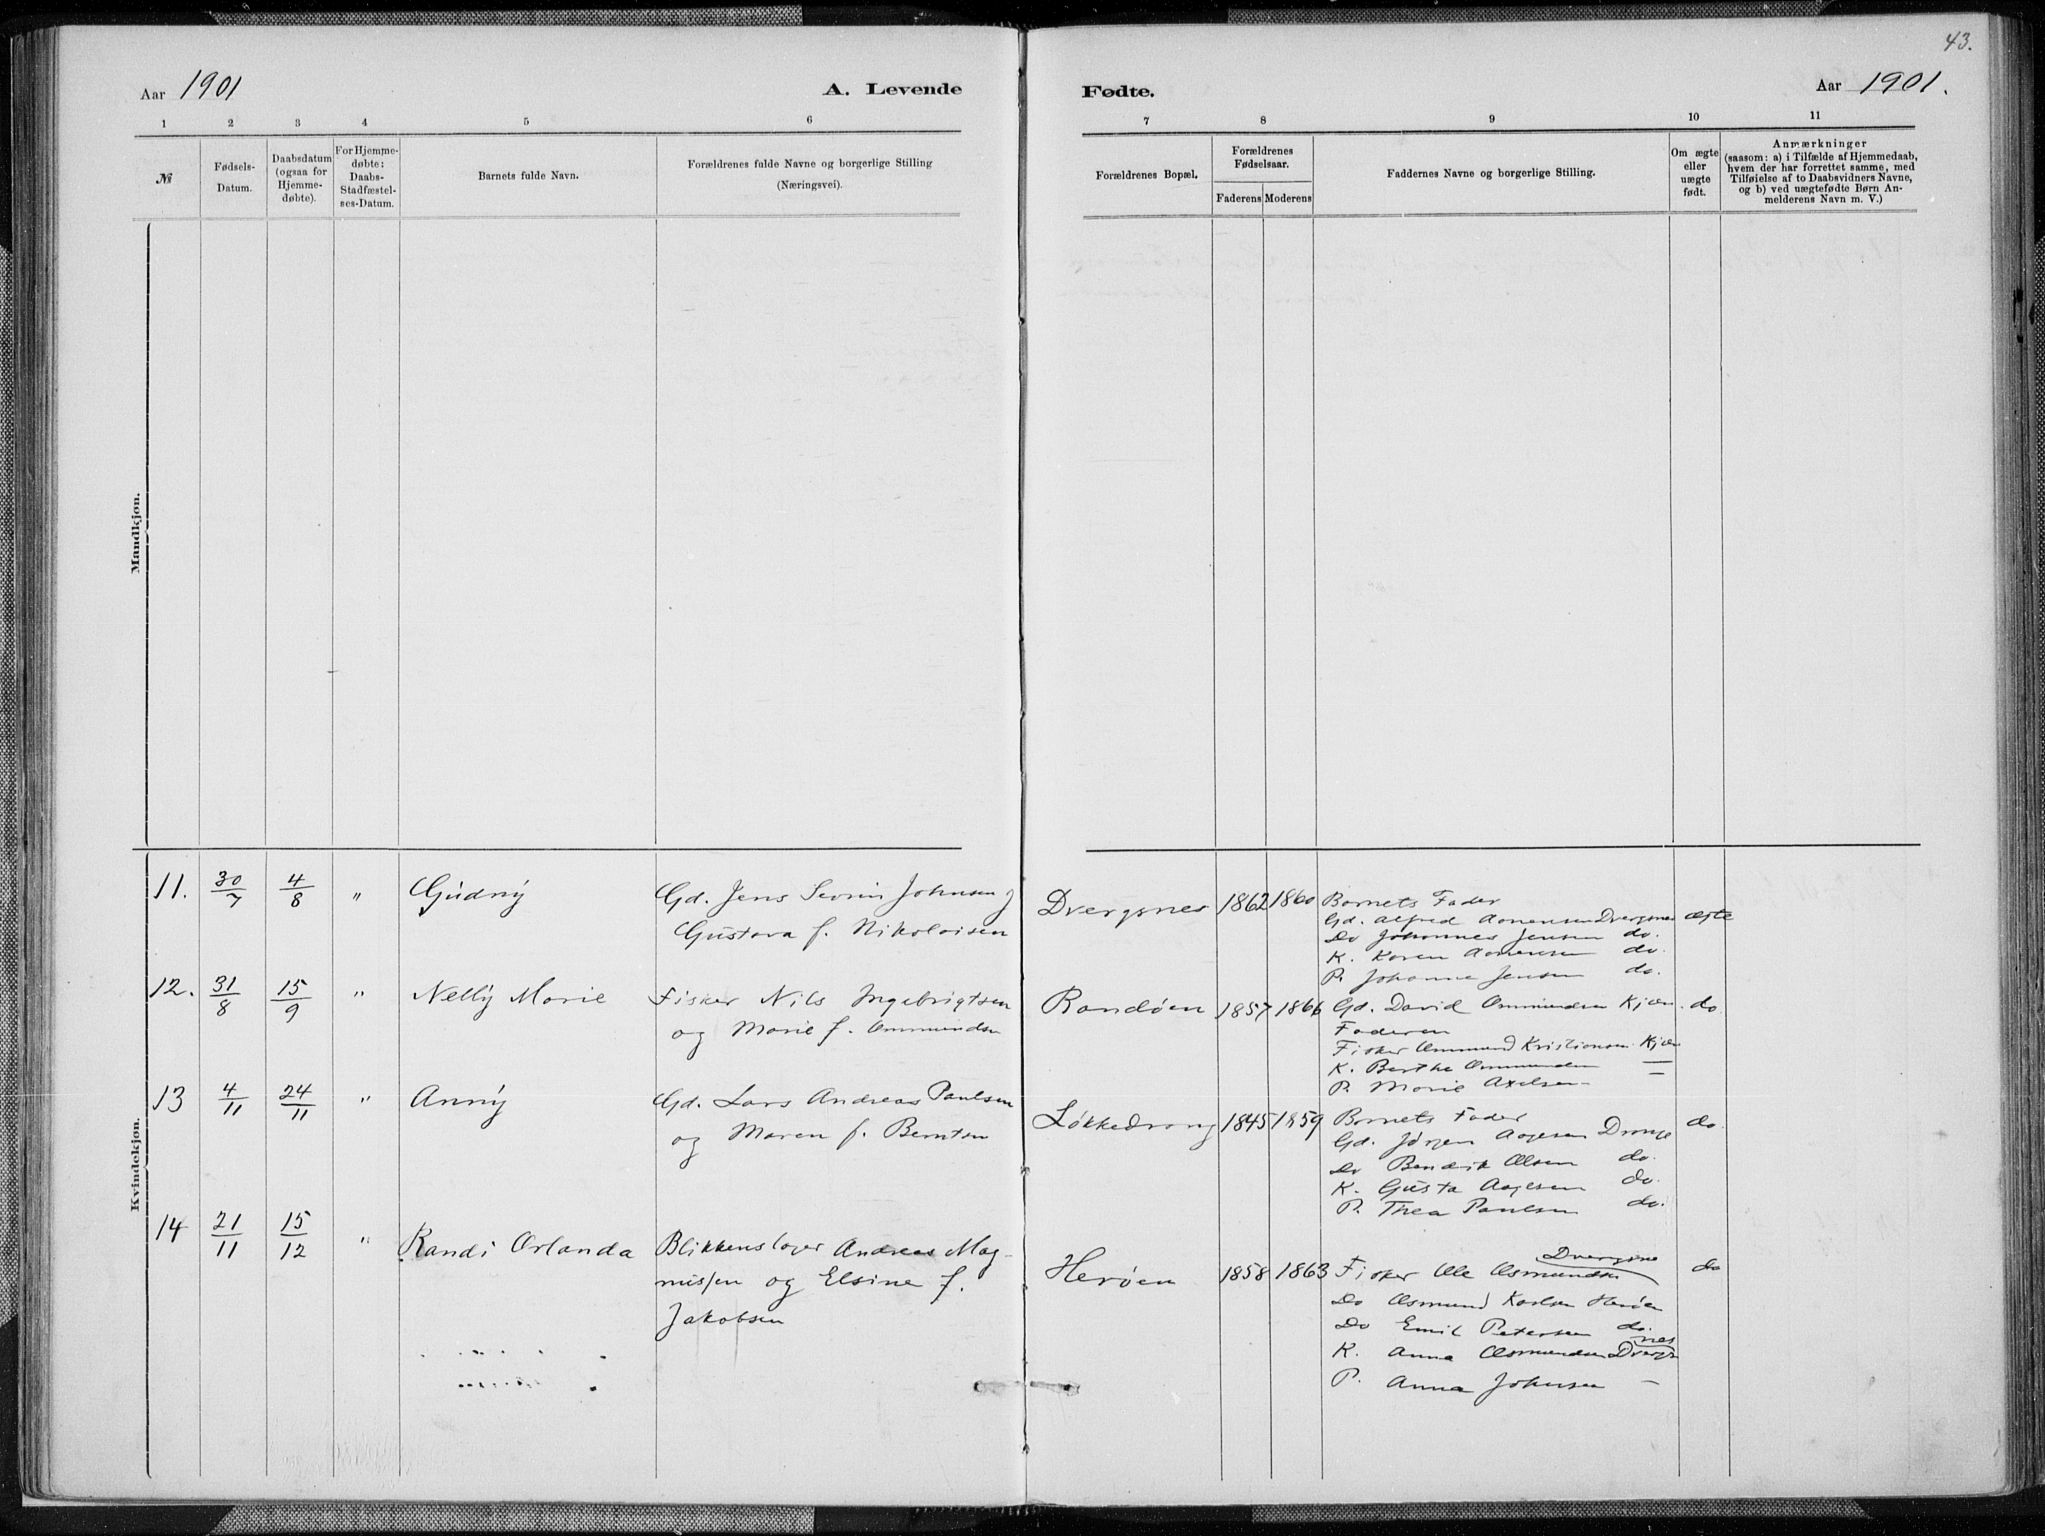 43.
Aar 1901
A. Levende
Fødte.
Aar 1901.
1 2 3 4 5 6 7 8 9 10 11
№
Fødsels-
Datum.
Daabsdatum
(ogsaa for
Hjemme-
døbte).
For Hjemme-
døbte:
Daabs-
Stadfæstel-
ses-Datum.
Barnets fulde Navn.
Forældrenes fulde Navne og borgerlige Stilling
(Næringsvei).
Forældrenes Bopæl.
Forældrenes
Fødselsaar.
Faderens Moderens
Faddernes Navne og borgerlige Stilling.
Om ægte
eller
uægte
født.
Anmærkninger
(saasom: a) i Tilfælde af Hjemmedaab,
hvem der har forrettet samme, med
Tilføielse af to Daabsvidners Navne,
og b) ved uægtefødte Børn An-
melderens Navn m. V.)
Mandkjøn.
Kvindekjøn.
11. 30/7 4/8 " Gudny
Gd. Jens Severin Johnsen og
Gustava f. Nikolaisen
Dvergsnes 1862 1860
Barnets Fader
Gd. Alfred Aanensen Dvergsnes ægte
Do Johannes Jensen do.
K. Karen Aanensen do.
P. Johanne Jensen do.
12. 31/8 15/9 " Nelly Marie
Fisker Nils Ingebrigtsen
og Marie f. Ommundsen
Randøen 1857 1866
Gd. David Ommundsen Kjær. do
Faderen
Fisker Ommund Kristiansen Kjær
K. Berthe Ommundsen —
P. Marie Axelsen —
13 4/11 24/11 " Anny
Gd. Lars Andreas Paulsen
og Maren f. Berntsen
Løkkedrang 1845 1859
Barnets Fader do.
Gd. Jørgen Aagesen Drange
Do Bendik Olsen do.
K. Gusta Aagesen do.
P. Thea Paulsen do.
14 21/11 15/12 " Randi Orlanda
Blikkenslager Andreas Mag-
nussen og Elsine f.
Jakobsen
Herøen 1858 1863
Dvergsne
Fisker Ole Osmundsen do
Do Osmund Karlsen Herøen
Do Emil Petersen do.
K. Anna Osmundsen Dvergsnes
P. Anna Johnsen —